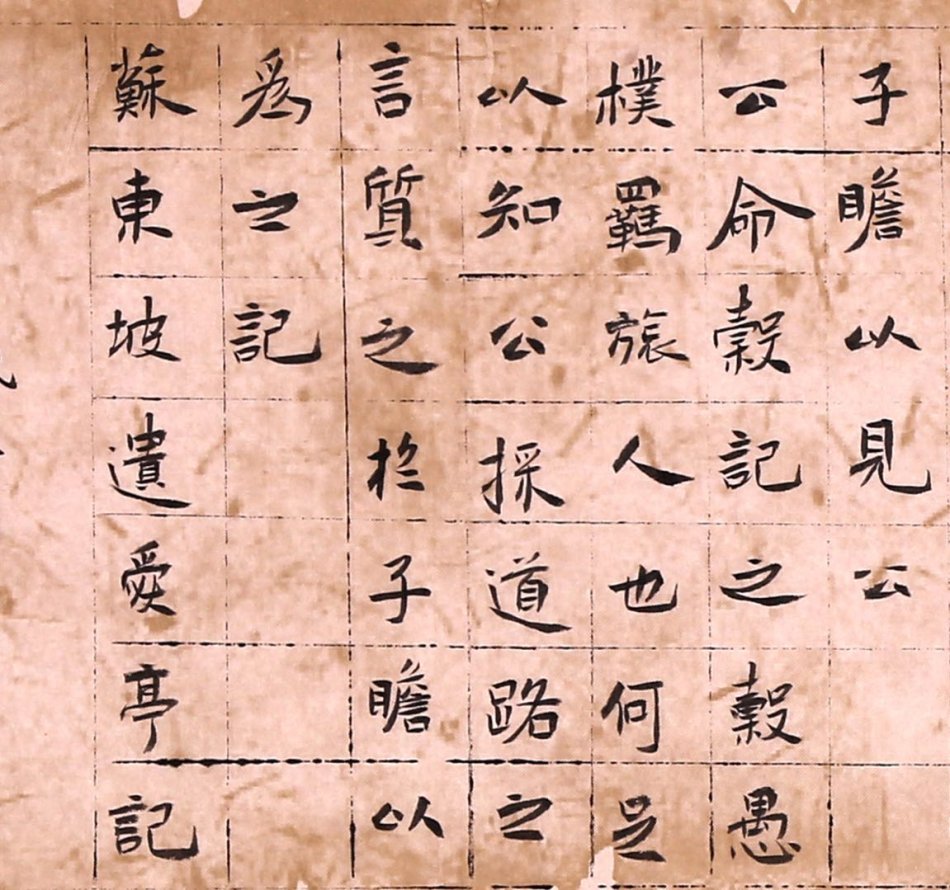 子瞻以見公
公命穀記之穀愚
樸羈旅人也何足
以知公採道路之
言質之於子瞻以
爲之記
蘇東坡遺愛亭記